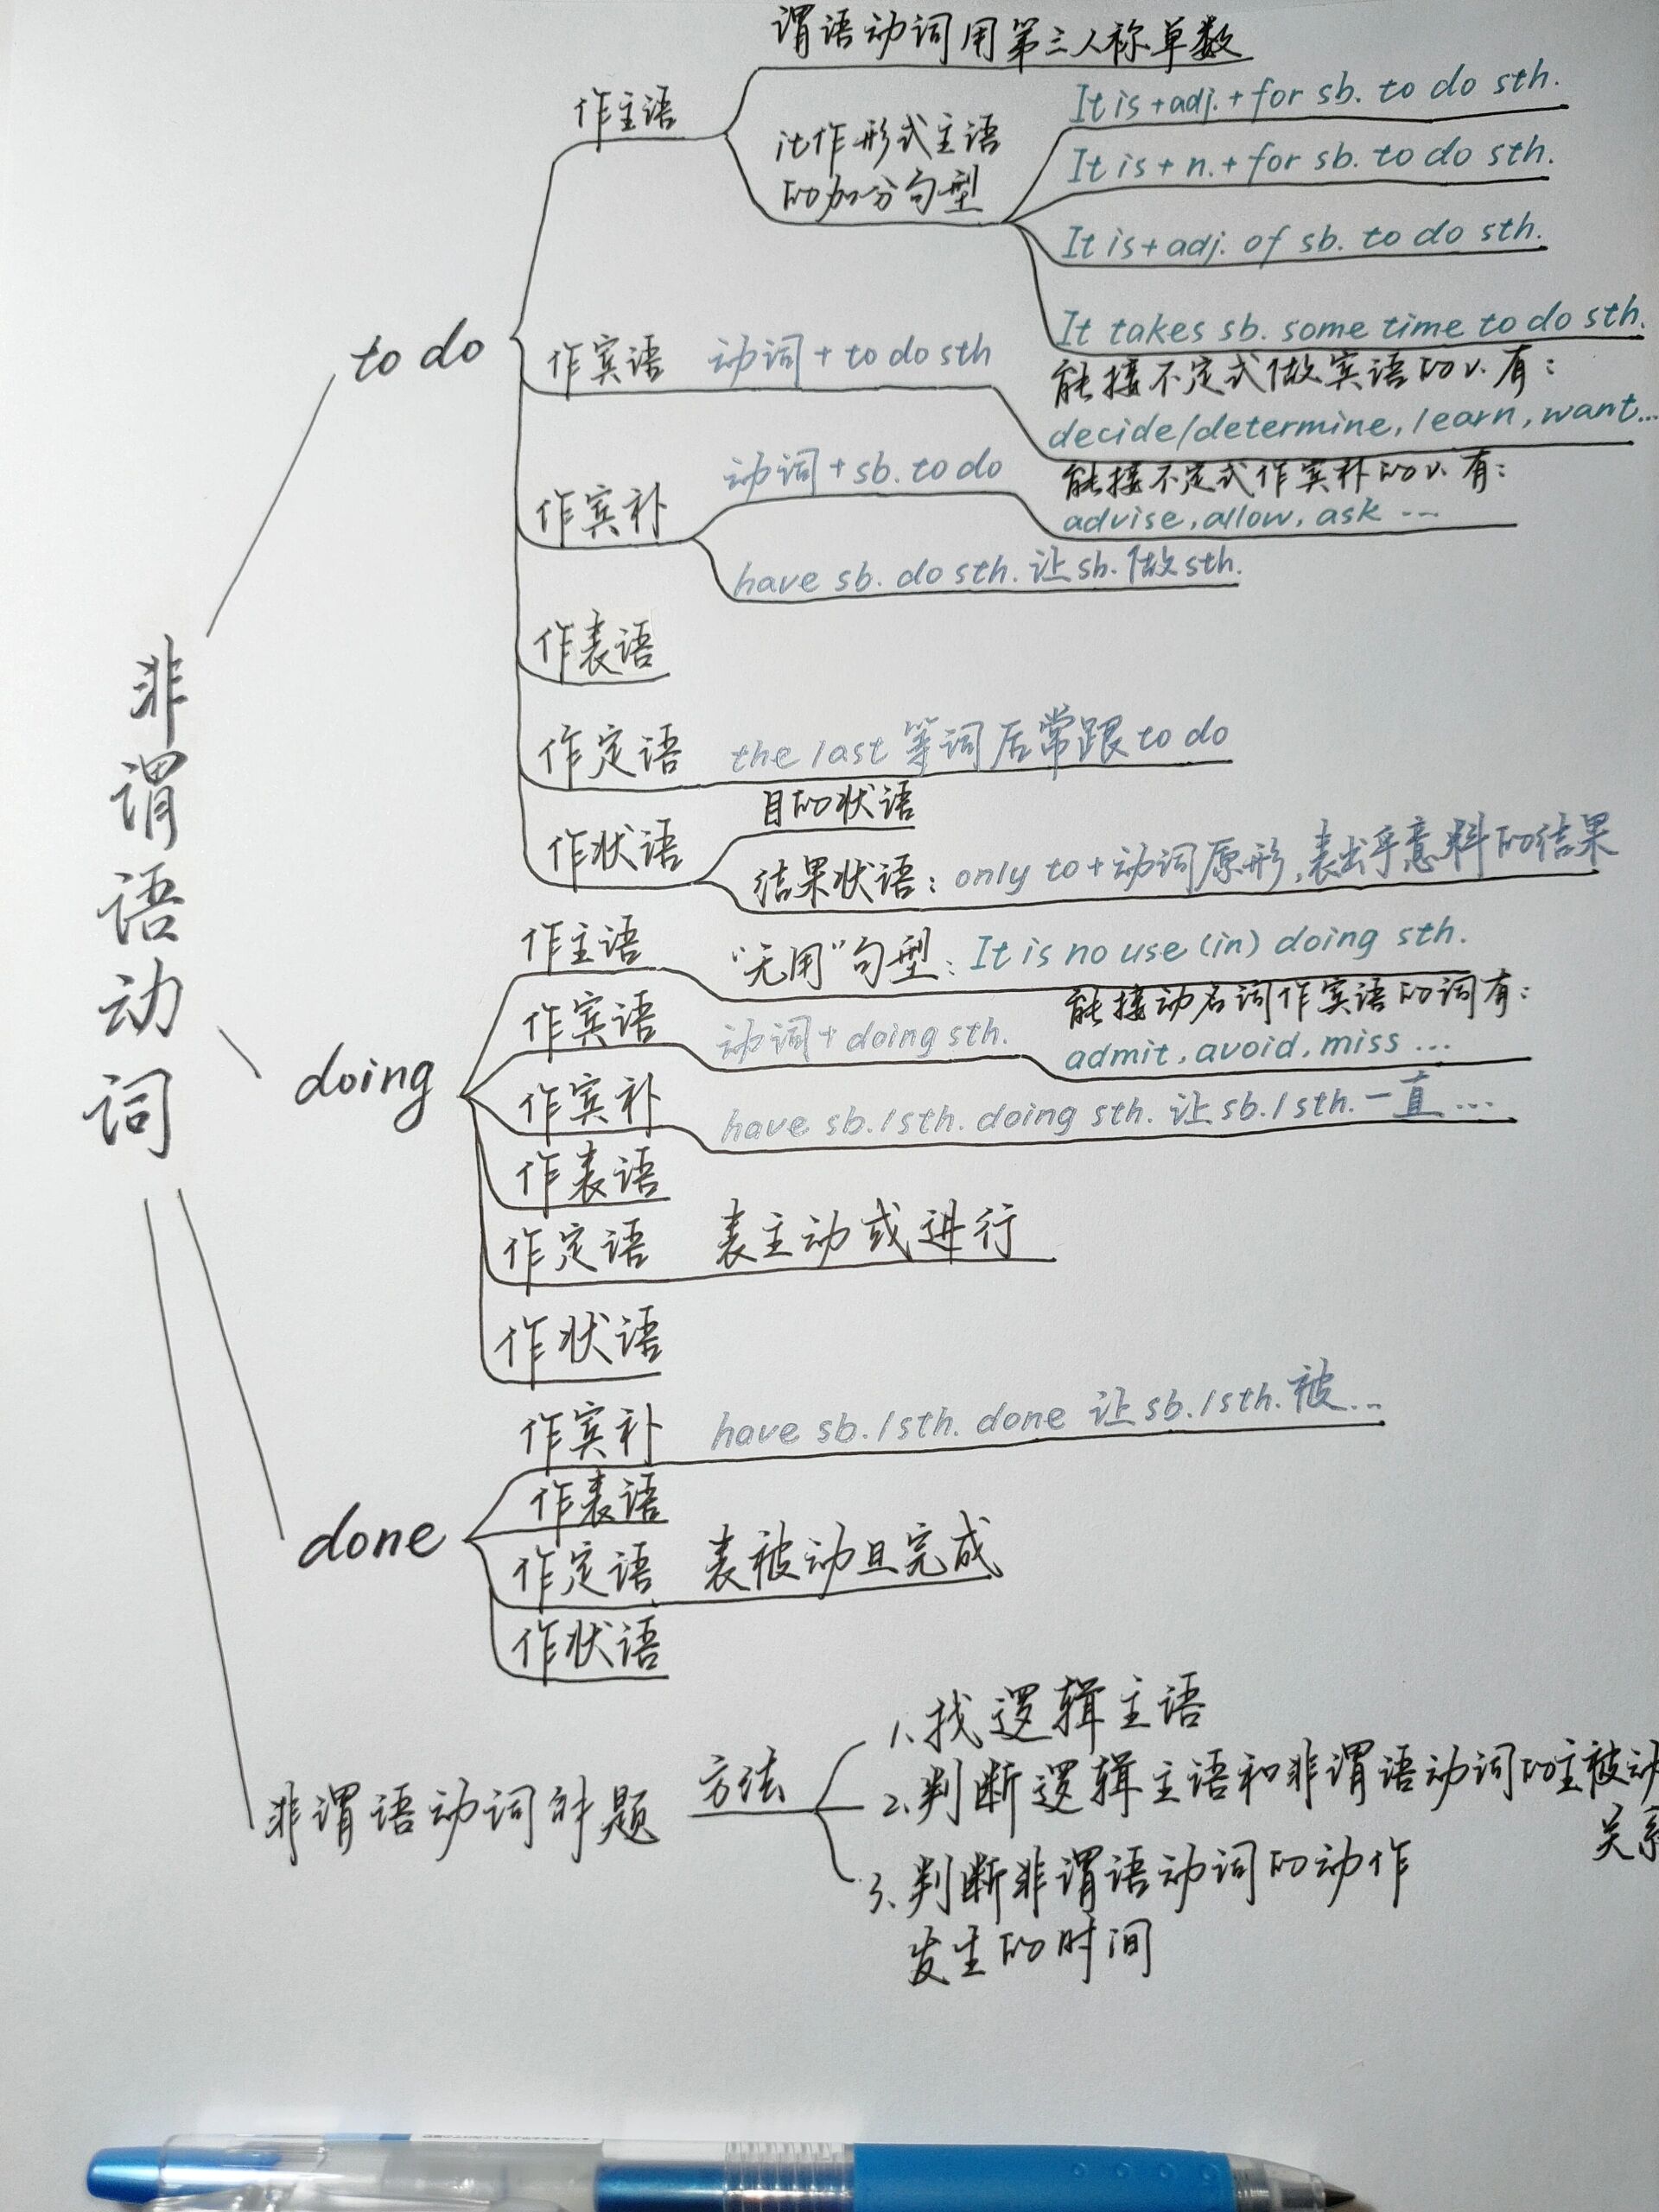 非谓语动词
to do
作主语
谓语动词用第三人称单数
it作形式主语
的加分句型
It is+adj.+for sb. to do sth.
It is+n.+for sb. to do sth.
It is+adj. of sb. to do sth.
It takes sb. some time to do sth.
作宾语 动词+to do sth
能接不定式做宾语的v.有:
decide/determine, learn, want...
作宾补
动词+sb. to do
能接不定式作宾补的v.有:
advise, allow, ask ...
have sb. do sth. 让sb.做sth.
作表语
作定语 the last 等词后常跟to do
作状语
目的状语
结果状语: only to+动词原形,表出乎意料的结果
doing
作主语
“无用”句型: It is no use (in) doing sth.
作宾语
动词+doing sth.
能接动名词作宾语的词有:
admit, avoid, miss ...
作宾补
have sb./sth. doing sth. 让sb./sth.一直...
作表语
作定语 表主动或进行
作状语
done
作宾补 have sb./sth. done 让sb./sth.被...
作表语
作定语 表被动且完成
作状语
非谓语动词 题 方法
1.找逻辑主语
2.判断逻辑主语和非谓语动词的主被动
关系
3.判断非谓语动词的动作
发生的时间